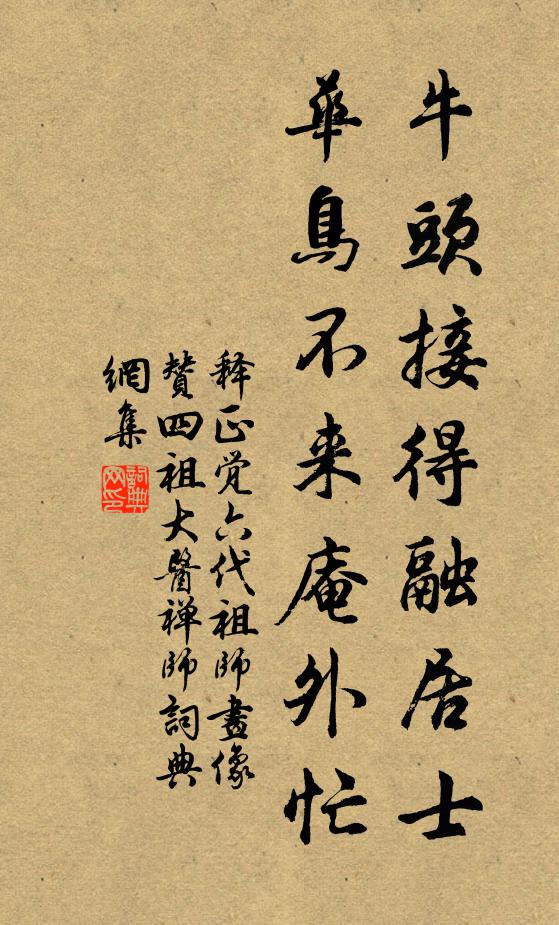 牛頭接得融居士
華鳥不来庵外忙
释正觉六代祖师畫像
贊四祖大醫禅师詞典
網集
詞典
网印